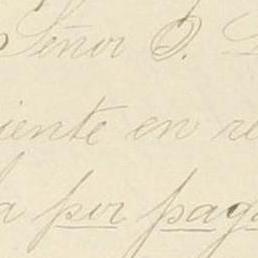 Señor D.
iente en re
a por pag